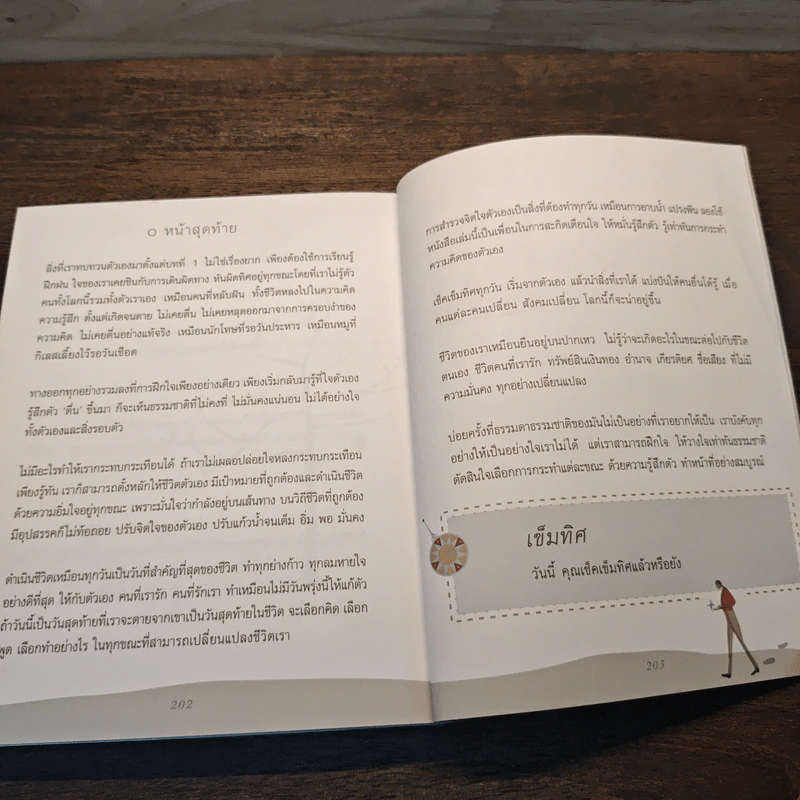 ○ หน้าสุดท้าย
สิ่งที่เราทบทวนตัวเองมาตั้งแต่บทที่ 1 ไม่ใช่เรื่องยาก เพียงต้องใช้การเรียนรู้
ฝึกฝน ใจของเราเคยชินกับการเดินผิดทาง หันผิดทิศอยู่ทุกขณะโดยที่เราไม่รู้ตัว
คนทั้งโลกนี้รวมทั้งตัวเราเอง เหมือนคนที่หลับฝัน ทั้งชีวิตหลงไปในความคิด
ความรู้สึก ตั้งแต่เกิดจนตาย ไม่เคยตื่น ไม่เคยหลุดออกมาจากการครอบงำของ
ความคิด ไม่เคยตื่นอย่างแท้จริง เหมือนนักโทษที่รอวันประหาร เหมือนหมูที่
กิเลสเลี้ยงไว้รอวันเชือด
ทางออกทุกอย่างรวมลงที่การฝึกใจเพียงอย่างเดียว เพียงเริ่มกลับมารู้ที่ใจตัวเอง
รู้สึกตัว 'ตื่น' ขึ้นมา ก็จะเห็นธรรมชาติที่ไม่คงที่ ไม่มั่นคงแน่นอน ไม่ได้อย่างใจ
ทั้งตัวเองและสิ่งรอบตัว
ไม่มีอะไรทำให้เรากระทบกระเทือนได้ ถ้าเราไม่เผลอปล่อยใจหลงกระทบกระเทือน
เพียงรู้ทัน เราก็สามารถตั้งหลักให้ชีวิตตัวเอง มีเป้าหมายที่ถูกต้องและดำเนินชีวิต
ด้วยความอิ่มใจอยู่ทุกขณะ เพราะมั่นใจว่ากำลังอยู่บนเส้นทาง บนวิถีชีวิตที่ถูกต้อง
มีอุปสรรคก็ไม่ท้อถอย ปรับจิตใจของตัวเอง ปรับแก้วน้ำจนเต็ม อิ่ม พอ มั่นคง
ดำเนินชีวิตเหมือนทุกวันเป็นวันที่สำคัญที่สุดของชีวิต ทำทุกย่างก้าว ทุกลมหายใจ
อย่างดีที่สุด ให้กับตัวเอง คนที่เรารัก คนที่รักเรา ทำเหมือนไม่มีวันพรุ่งนี้ให้แก้ตัว
ถ้าวันนี้เป็นวันสุดท้ายที่เราจะตายจากเขาเป็นวันสุดท้ายในชีวิต จะเลือกคิด เลือก
พูด เลือกทำอย่างไร ในทุกขณะที่สามารถเปลี่ยนแปลงชีวิตเรา
202
การสำรวจจิตใจตัวเองเป็นสิ่งที่ต้องทำทุกวัน เหมือนการอาบน้ำ แปรงฟัน ลองใช้
หนังสือเล่มนี้เป็นเพื่อนในการสะกิดเตือนใจ ให้หมั่นรู้สึกตัว รู้เท่าทันการกระทำ
ความคิดของตัวเอง
เช็คเข็มทิศทุกวัน เริ่มจากตัวเอง แล้วนำสิ่งที่เราได้ แบ่งปันให้คนอื่นได้รู้ เมื่อ
คนแต่ละคนเปลี่ยน สังคมเปลี่ยน โลกนี้ก็จะน่าอยู่ขึ้น
ชีวิตของเราเหมือนยืนอยู่บนปากเหว ไม่รู้ว่าจะเกิดอะไรในขณะต่อไปกับชีวิต
ตนเอง ชีวิตคนที่เรารัก ทรัพย์สินเงินทอง อำนาจ เกียรติยศ ชื่อเสียง ที่ไม่มี
ความมั่นคง ทุกอย่างเปลี่ยนแปลง
บ่อยครั้งที่ธรรมดาธรรมชาติของมันไม่เป็นอย่างที่เราอยากให้เป็น เราบังคับทุก
อย่างให้เป็นอย่างใจเราไม่ได้ แต่เราสามารถฝึกใจ ให้วางใจเท่าทันธรรมชาติ
ตัดสินใจเลือกการกระทำแต่ละขณะ ด้วยความรู้สึกตัว ทำหน้าที่อย่างสมบูรณ์
เข็มทิศ
วันนี้ คุณเช็คเข็มทิศแล้วหรือยัง
203